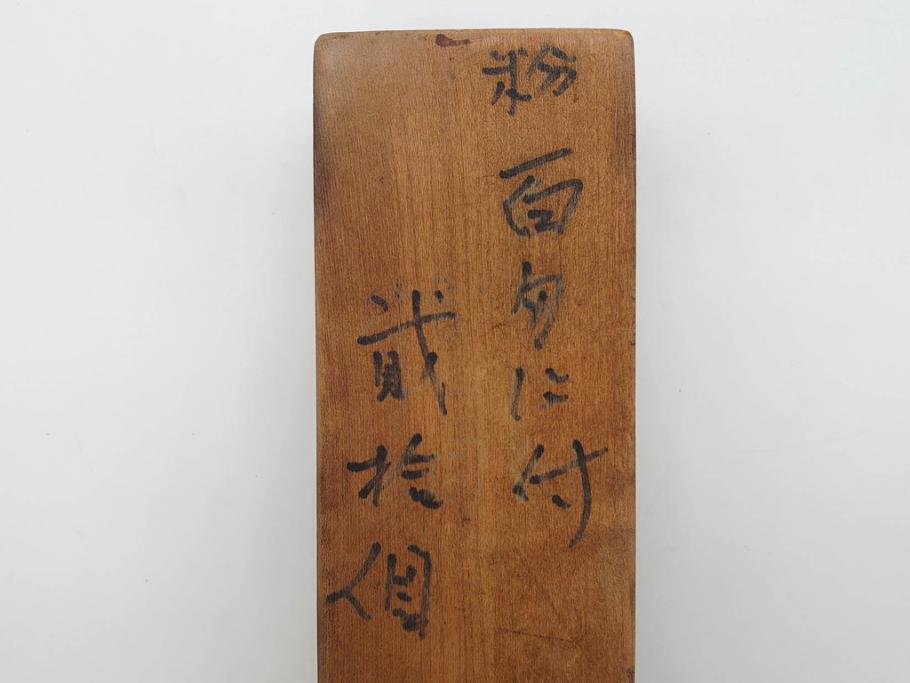 粉百匁に付
貳拾個